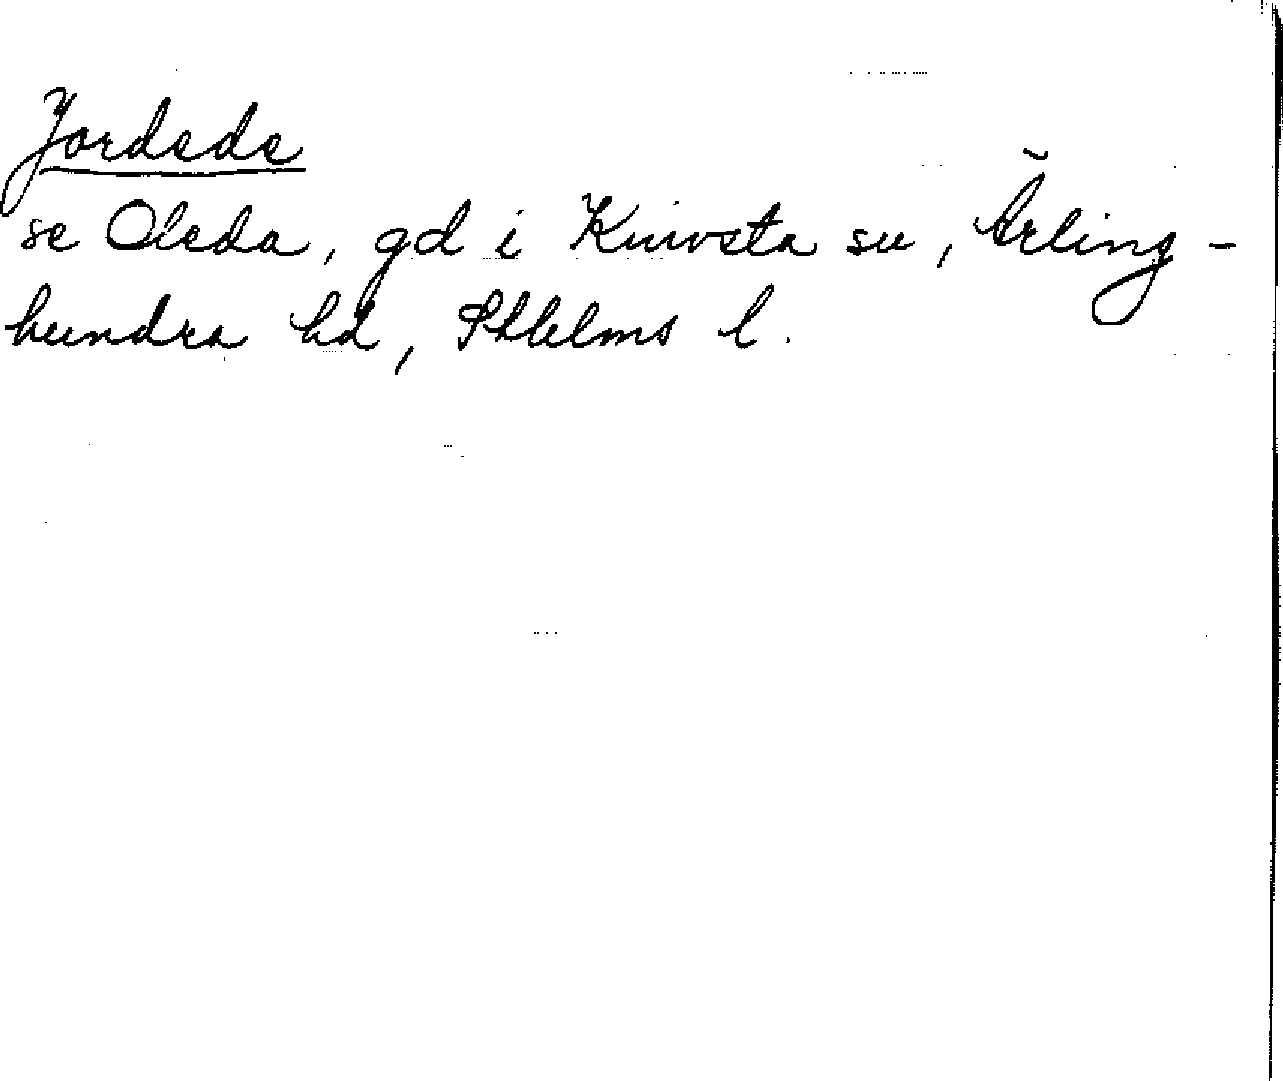 Jordede
se Oleda, gd i Knivsta sn, Ärling-
hundra hd, Sthlms l.